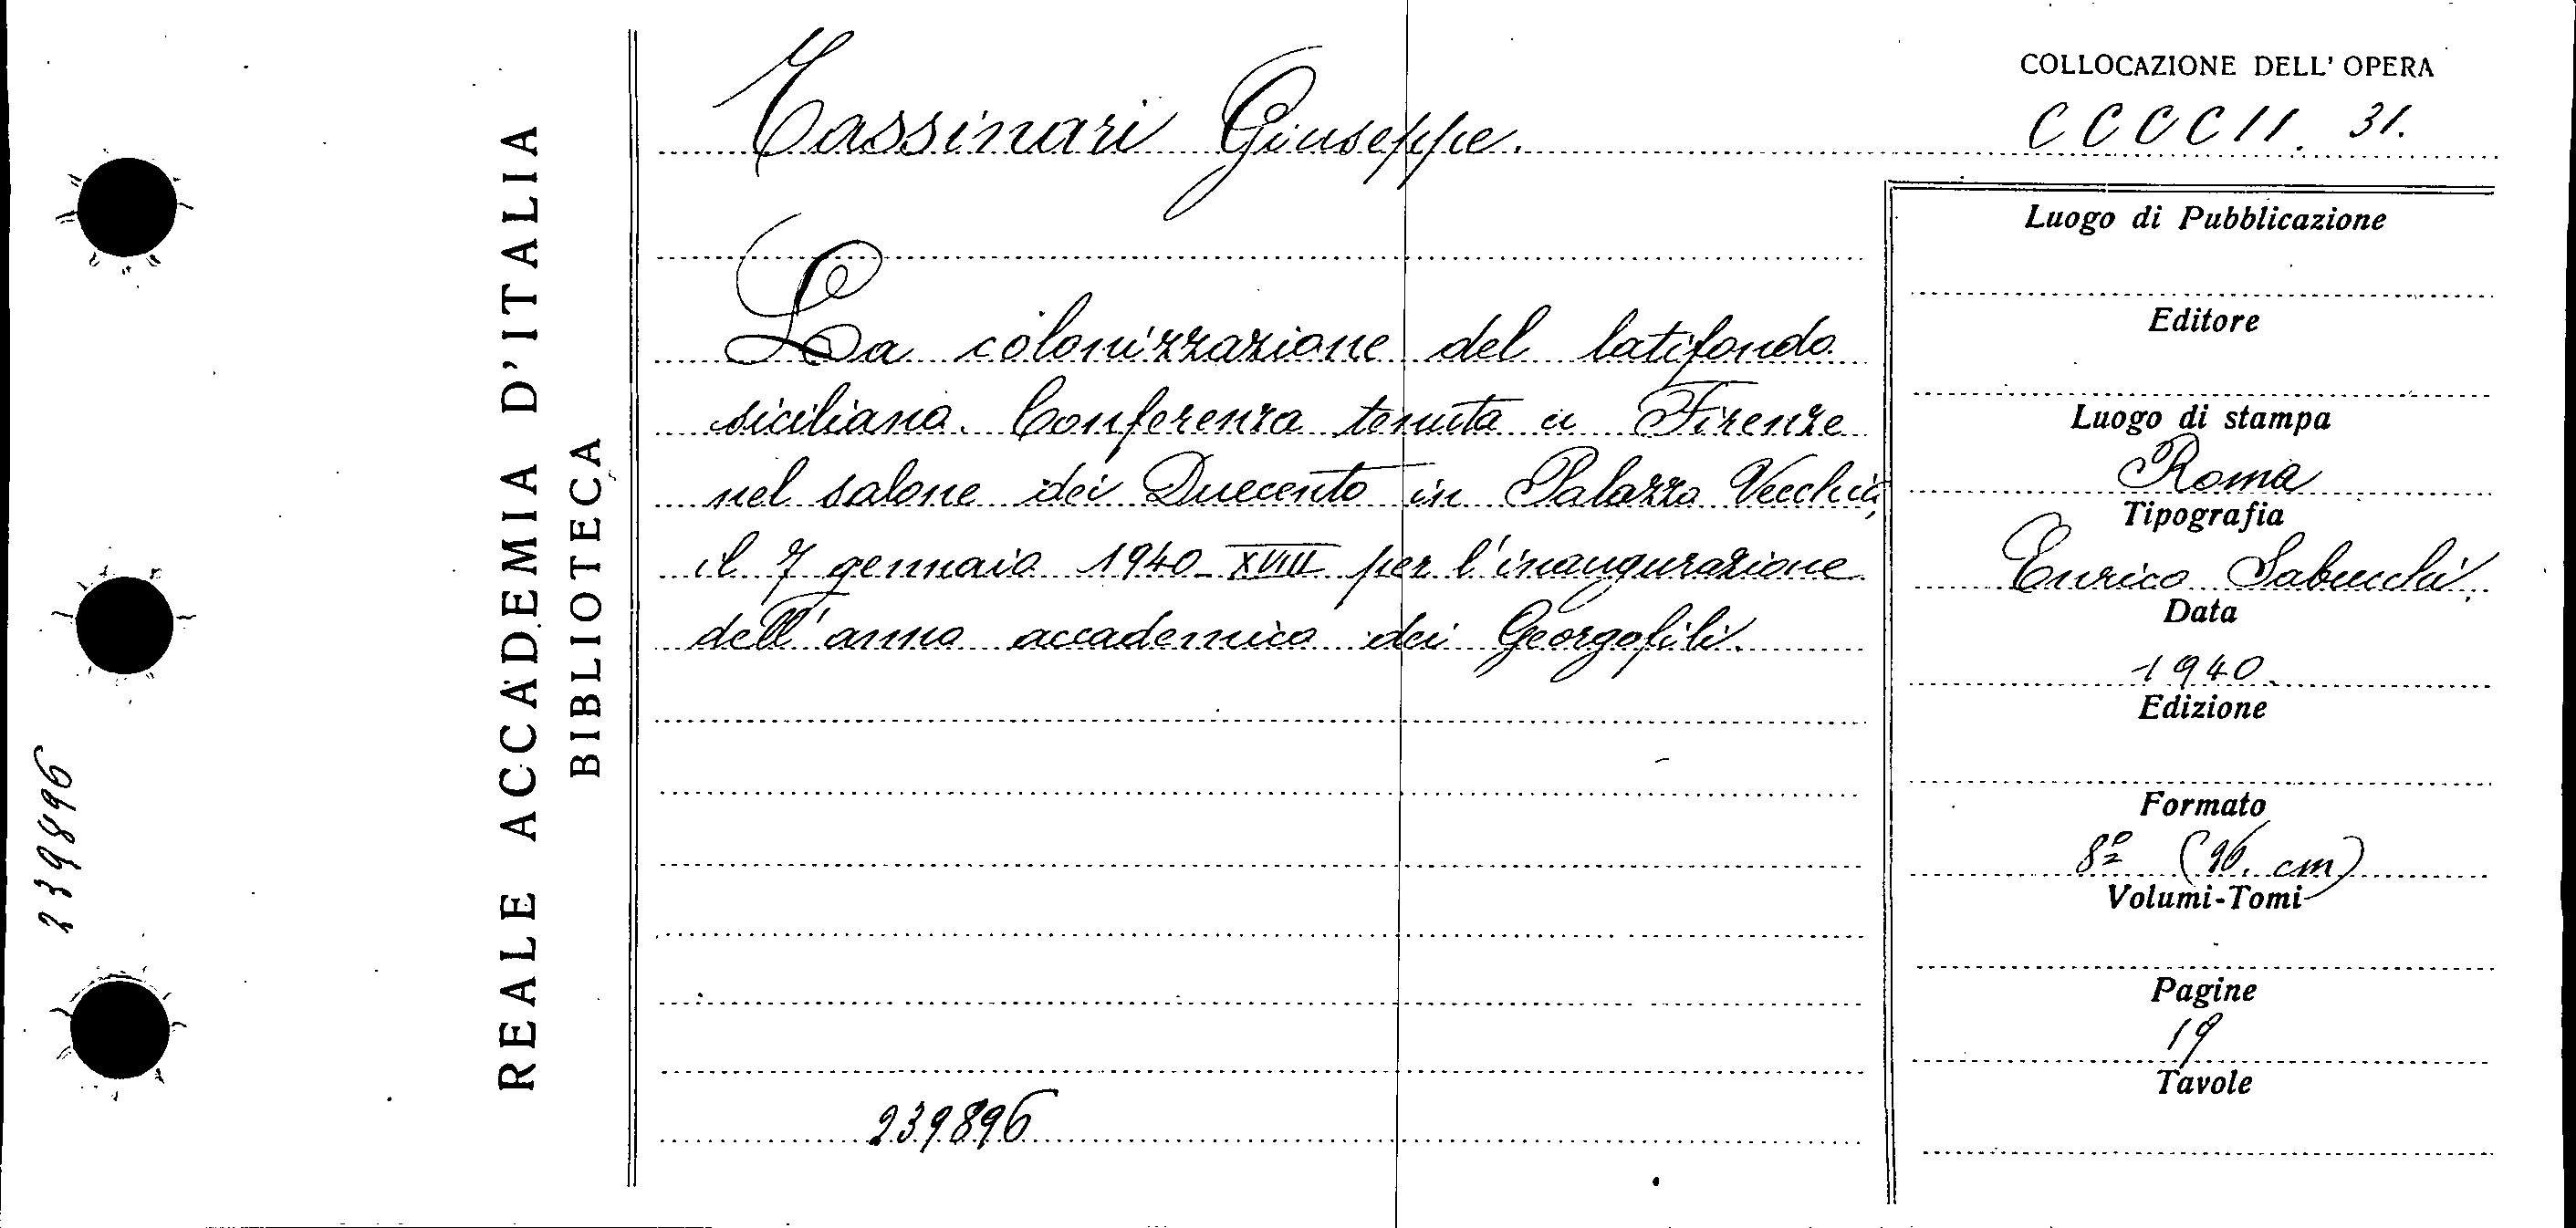 REALE ACCADEMIA D'ITALIA
BIBLIOTECA
239896
Tassinari Giuseppe.
La colonizzazione del latifondo
siciliano. Conferenza tenuta a Firenze
nel salone dei Duecento in Palazzo Vecchio,
il 7 gennaio 1940-XVIII per l'inaugurazione
dell'anno accademico dei Georgofili.
239896
COLLOCAZIONE DELL'OPERA
CCCCII. 31.
Luogo di Pubblicazione
Editore
Luogo di stampa
Roma
Tipografia
Enrico
Data
1940.
Edizione
Formato
8º ( cm)
Volumi-Tomi
Pagine
19
Tavole